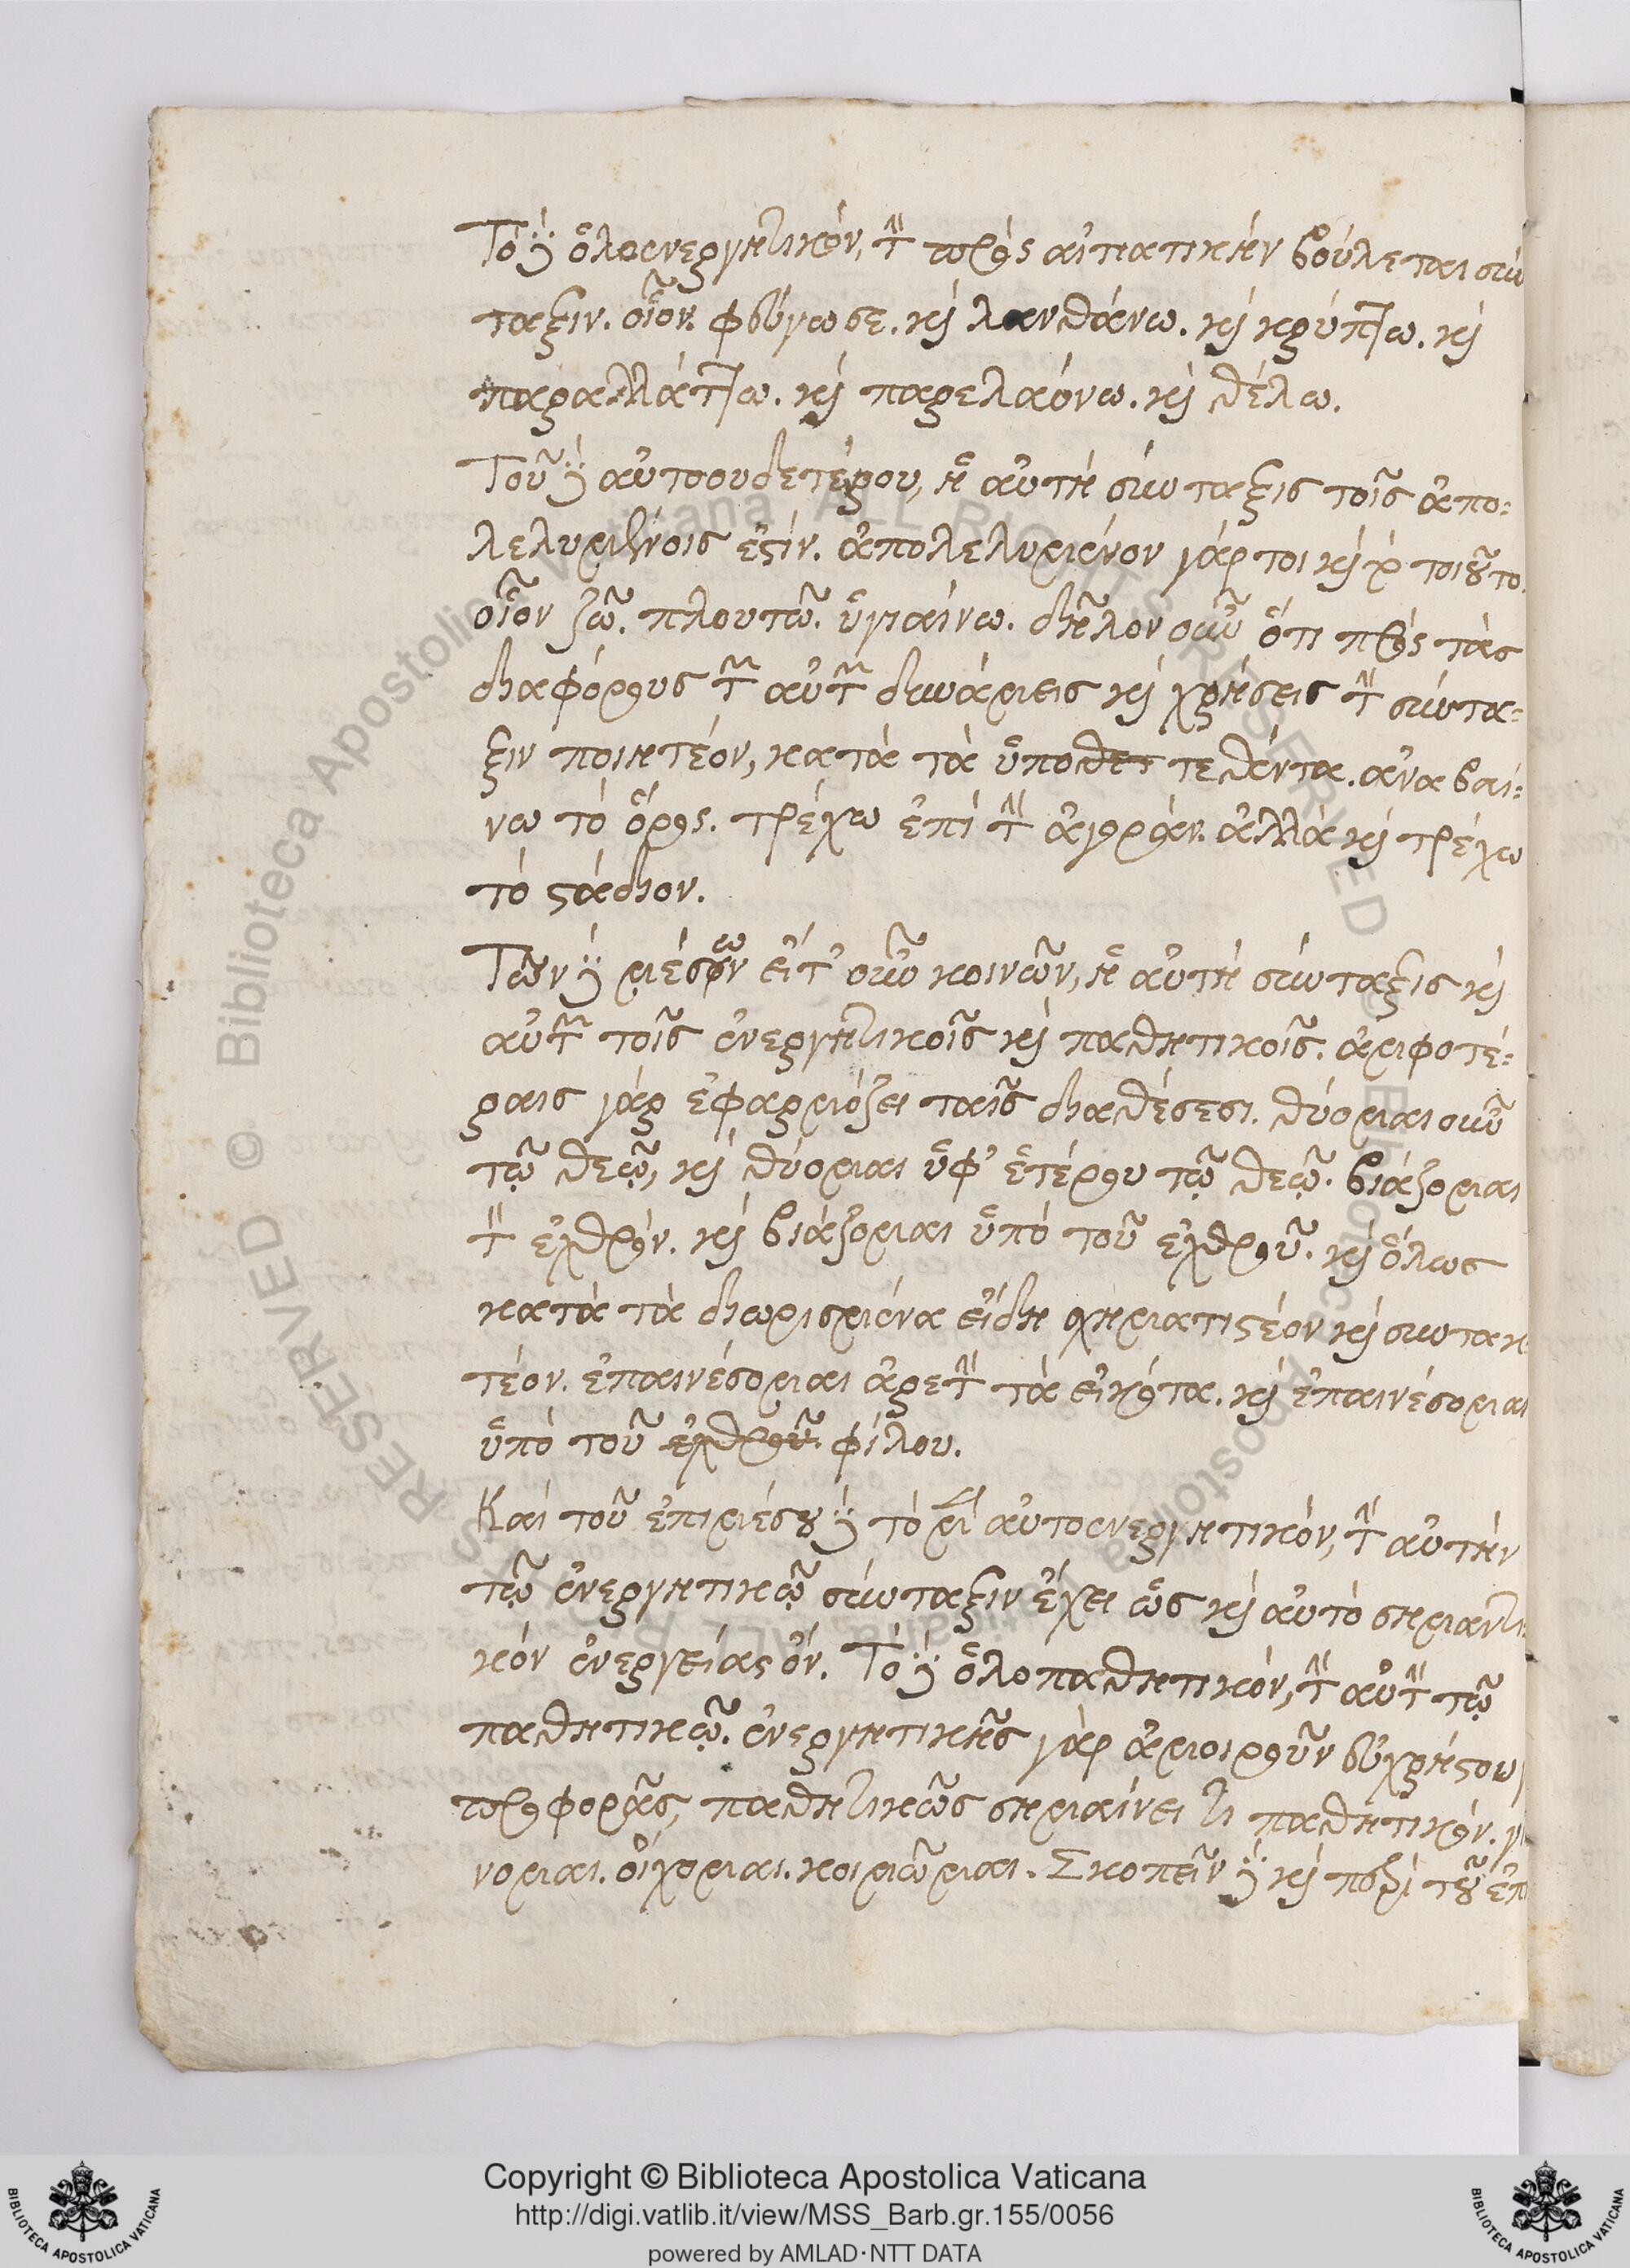 Τὸ δὲ ὁλοενεργητικὸν, τὴν πρὸς αἰτιατικὴν βούλεται σύν
ταξιν. οἷον. φεύγω σε. καὶ λανθάνω. καὶ κρύπτω. καὶ
παραλλάττω. καὶ παρελαύνω. καὶ θέλω.
Τοῦ δὲ αὐτοουδετέρου, ἡ αὐτὴ σύνταξις τοῖς ἀπο-
λελυμένοις ἐστίν. ἀπολελυμένον γάρ τοι καὶ τοιοῦτο.
οἷον ζῶ. πλουτῶ. ὑγιαίνω. δῆλον οὖν ὅτι πρὸς τὰς
διαφόρους τῶν αὐτῶν δυνάμεις καὶ χρήσεις τὴν σύντα-
ξιν ποιητέον, κατὰ τὰ ὑποθετ τεθέντα. ἀναβαί-
νω τὸ ὄρος. τρέχω ἐπὶ τὴν ἀγοράν. ἀλλὰ καὶ τρέχω
τὸ στάδιον.
Τῶν δὲ μέσων εἴτ' οὖν κοινῶν, ἡ αὐτὴ σύνταξις καὶ
αὐτῶν τοῖς ἐνεργητικοῖς καὶ παθητικοῖς. ἀμφοτέ-
ραις γὰρ ἐφαρμόζει ταῖς διαθέσεσι. θύομαι οὖν
τῷ θεῷ, καὶ θύομαι ὑφ' ἑτέρου τῷ θεῷ. βιάζομαι
τὸν ἐχθρόν. καὶ βιάζομαι ὑπὸ τοῦ ἐχθροῦ. καὶ ὅλως
κατὰ τὰ διωρισμένα εἴδη σχηματιστέον καὶ συντακ
τέον. ἐπαινέσομαι ἀρετὴν τὰ εἰκότα. καὶ ἐπαινέσομαι
ὑπὸ τοῦ ἐχθροῦ. φίλου.
Καὶ τοῦ ἐπιμέσου δὲ τὸ μὲν αὐτοενεργητικὸν, τὴν αὐτὴν
τῷ ἐνεργητικῷ σύνταξιν ἔχει ὡς καὶ αὐτὸ σημαντι
κὸν ἐνεργείας ὄν. Τὸ δὲ ὁλοπαθητικὸν, τὴν αὐτὴν τῷ
παθητικῷ. ἐνεργητικῆς γὰρ ἀμοιροῦν εὐχρήστου
προφορᾶς, παθητικῶς σημαίνει τι παθητικόν. γί
νομαι. οἴχομαι. κοιμῶμαι. Σκοπεῖν δὲ καὶ περὶ τοῦ ἐπι